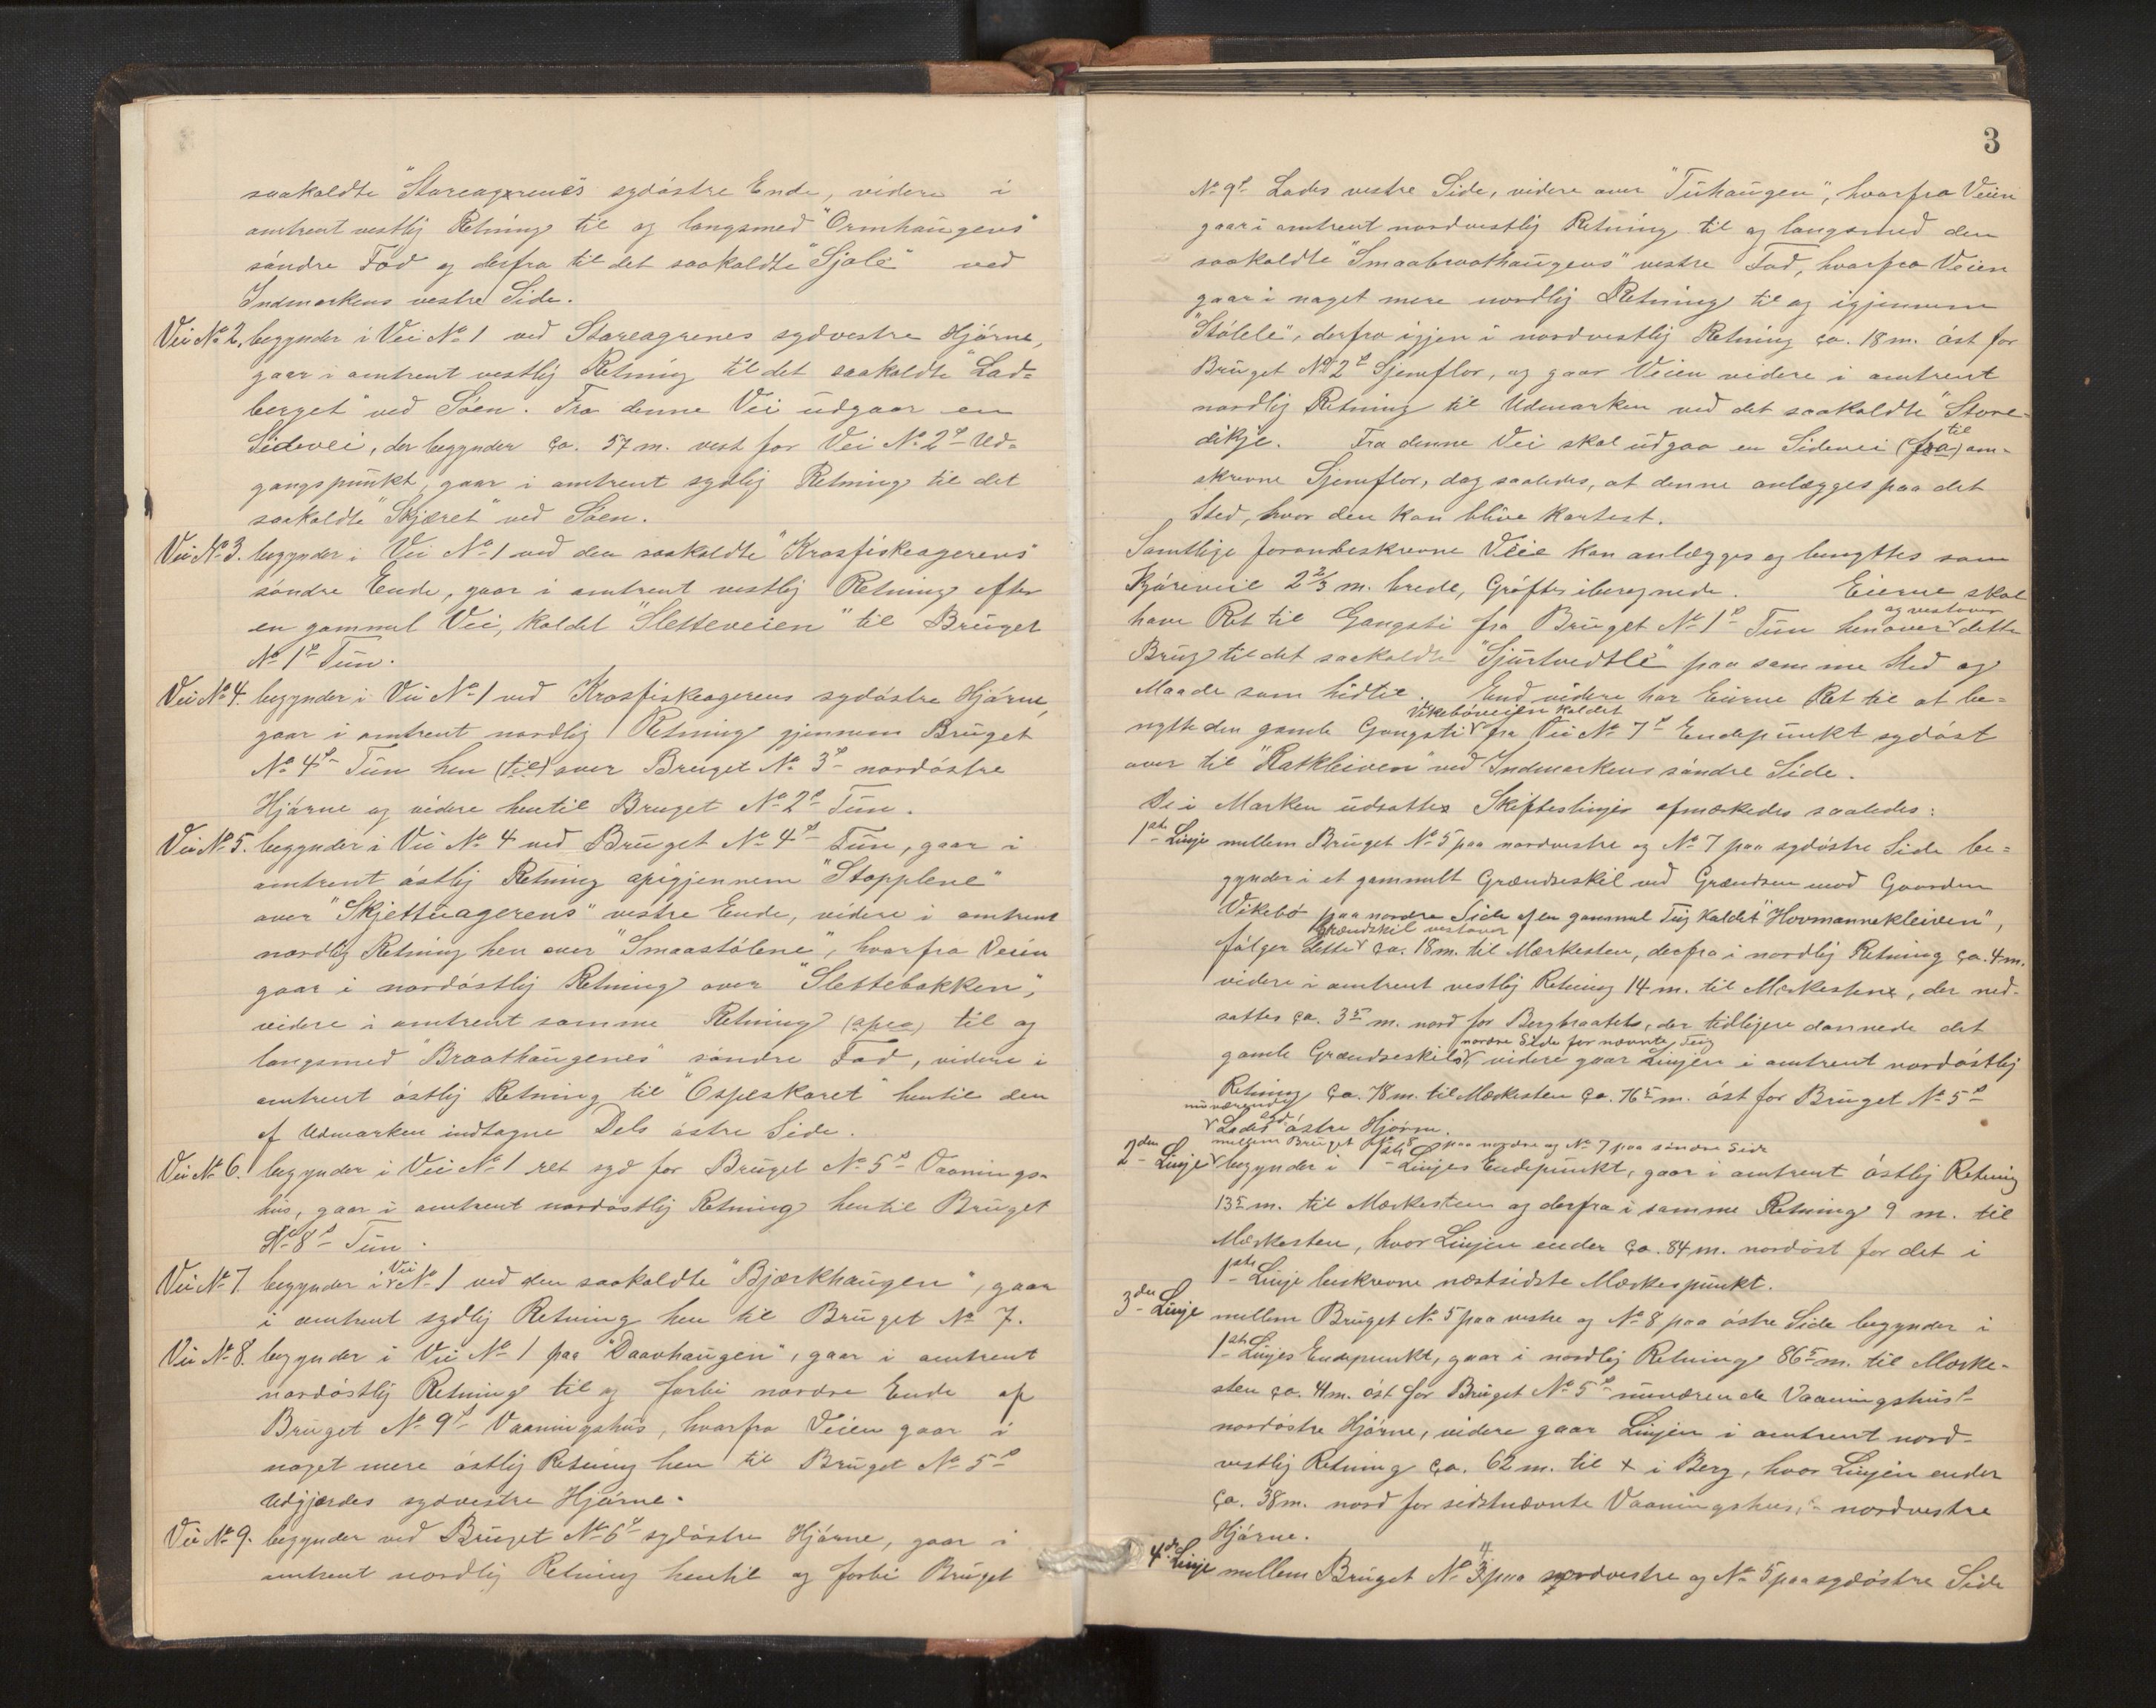 saakaldte "Storeagrenes sydöstre Ende, videre i
amtrent vestlig Retning til og langsmed "Ormhaugens"
söndre Fod og derfra til det saakaldte "Sjale" ved
Indmarkens vestre Side.
Vei No 2. begynder i Vei No 1 ved Storeagrenes sydvestre Hjörne,
gaar i amtrent vestlig Retning til det saakaldte "Lad=
berget" ved Söen. Fra denne Vei udgaar en
Sidevei, der begynder ca. 57 m. vest for Vei No 2s Ud=
gangspunkt, gaar i amtrent sydlig Retning til det
saakaldte "Skjæret" ved Söen.
Vei No 3. begynder i Vei No 1 ved den saakaldte "Krosfiskeagerens"
söndre Ende, gaar i amtrent vestlig Retning efter
en gammel Vei, kaldet "Sletteveien" til Bruget
No 1s Tun.
Vei No 4. begynder i Vei No 1 ved Krosfiskeagerens sydöstre Hjörne,
gaar i amtrent nordlig Retning gjennem Bruget
No 4s Tun hen (til) over Bruget No 3s nordöstre
Hjörne og videre hentil Bruget No 2s Tun.
Vei No 5. begynder i Vei No 4 ved Bruget No 4s Tun, gaar i
amtrent östlig Retning opigjennem "Stopplene"
over "Skjettuagerens" vestre Ende, videre i amtrent
nordlig Retning hen over "Smaastölene", hvorfra Veien
gaar i nordöstlig Retning over "Slettebakken",
videre i amtrent samme Retning (opea) til og
langsmed "Braathaugenes" söndre Fod, videre i
amtrent östlig Retning til "Ospeskaret" hentil den
af Udmarken indtagne Dels östre Side.
Vei No 6. begynder i Vei No 1 ret syd for Bruget No 5s Vaanings=
hus, gaar i amtrent nordöstlig Retning hentil Bruget
No 8s Tun.
Vei No 7. begynder i Vei No 1 ved den saakaldte "Bjærkhaugen", gaar
i amtrent sydlig Retning hen til Bruget No 7.
Vei No 8. begynder i Vei No 1 paa "Daavhaugen", gaar i amtrent
nordöstlig Retning til og forbi nordre Ende af
Bruget No 9s Vaaningshus, hvorfra Veien gaar i
noget mere östlig Retning hen til Bruget No 5s
Udgjærdes sydvestre Hjörne.
Vei No 9. begynder ved Bruget No 6s sydöstre Hjörne, gaar i
amtrent nordlig Retning hentil og forbi Bruget
3
No 9s Lades vestre Side, videre over "Tuhaugen", hvorfra Veien
gaar i amtrent nordvestlig Retning til og langsmed den
saakaldte "Smaabraathaugens" vestre Fod, hvorfra Veien
gaar i noget mere nordlig Retning til og igjennem
"Stölele", derfra igjen i nordvestlig Retning ca. 18 m. öst for
Bruget No 2s Sjeneflor, og gaar Veien videre i amtrent
nordlig Retning til Udmarken ved det saakaldte "Store-
dikje. Fra denne Vei skal udgaa en Sidevei (fra) til om-
skrevne Sjeneflor, dog saaledes, at denne anlægges paa det
Sted, hvor den kan blive kortest.
Samtlige foranbeskrevne Veie kan anlægges og benyttes som
Kjöreveie 2 2/3 m. brede, Gröfter iberegnede. Eierne skal
have Ret til Gangsti fra Bruget No 1s Tun henover og vestover dette
Brug til det saakaldte "Sjurtvedtle" paa samme Sted og
Maade som hidtil. End videre har Eierne Ret til at be=
nytte den gamle Gangsti Vikeböveien kaldet fra Vei No 7s Endepunkt sydöst
over til "Ratkleiven" ved Indmarkens söndre Side.
De i Marken udsatte Skifteslinjer afmærkedes saaledes:
1ste Linje mellem Bruget No 5 paa nordvestre og No 7 paa sydöstre Side be=
gynder i et gammelt Grændseskil ved Grændsen mod Gaarden
Vikebö paa nordre Side af en gammel Teig kaldet "Hovmannekleiven",
fölger dette Grændskil vestover ca. 18 m. til Mærkesten, derfra i nordlig Retning ca. 4 m.
videre i amtrent vestlig Retning 14 m. til Mærkesten, der ned-
sattes ca. 35 m. nord for Bergbraatets, der tidligere dannede det
gamle Grændseskils nordre Side for nævnte Teig, videre gaar Linjen i amtrent nordöstlig
Retning ca. 78 m. til Mærkesten ca. 165 m. öst for Bruget No 5s
nuværende Lades syd östre Hjörne.
2den Linje mellem Bruget No 8 paa nordre og No 7 paa söndre Side begynder i 1ste Linjes Endepunkt, gaar i amtrent östlig Retning
135 m. til Mærkesten og derfra i samme Retning 9 m. til
Mærkesten, hvor Linjen ender ca. 84 m. nordöst for det i
1ste Linje beskrevne næstsidste Mærkespunkt.
3die Linje mellem Bruget No 5 paa vestre og No 8 paa östre Side begynder i
1ste Linjes Endepunkt, gaar i nordlig Retning 865 m. til Mærke-
sten ca. 41 m. öst for Bruget No 5s nuværende Vaaningshus's
nordöstre Hjörne, videre gaar Linjen i amtrent nord-
vestlig Retning ca. 62 m. til x i Berg, hvor Linjen ender
ca. 38 m. nord for sidstnævnte Vaaningshus's nordvestre
Hjörne.
4de Linje mellem Bruget No 4 paa nordvestre og No 5 paa sydöstre Side